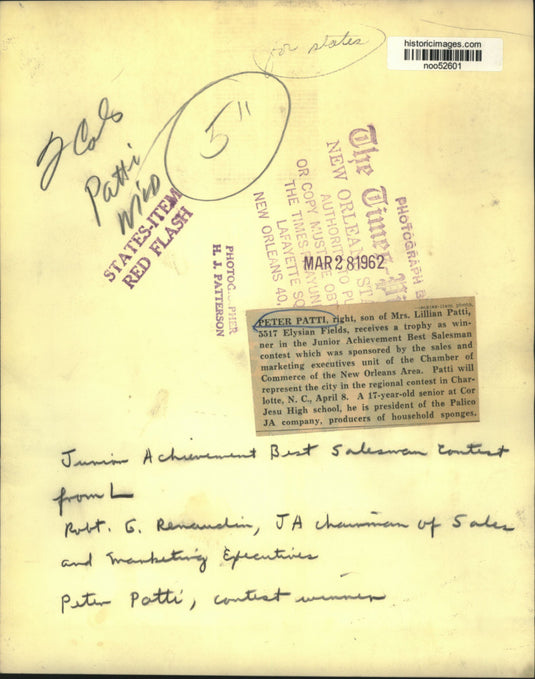 for states
historicimages.com
noo52601
2 Cols
Patti
5"
STATES-ITEM
RED FLASH
The Times
NEW ORLEANS STA
AUTHORITY TO PU
OR COPY MUST BE OBT
THE TIMES-PICAYUN
LAFAYETTE SQ
NEW ORLEANS 40,
PHOTOGRAPH B
MAR 28 1962
PHOTOGRAPHER
H. J. PATTERSON
—States-Item photo.
PETER PATTI, right, son of Mrs. Lillian Patti,
5517 Elysian Fields, receives a trophy as win-
ner in the Junior Achievement Best Salesman
contest which was sponsored by the sales and
marketing executives unit of the Chamber of
Commerce of the New Orleans Area. Patti will
represent the city in the regional contest in Char-
lotte, N. C., April 8. A 17-year-old senior at Cor
Jesu High school, he is president of the Palico
JA company, producers of household sponges.
Junior Achievement Best Salesman Contest
from L
Robt. G. Renaudin, JA chairman of Sales
and Marketing Executives
Peter Patti, contest winner